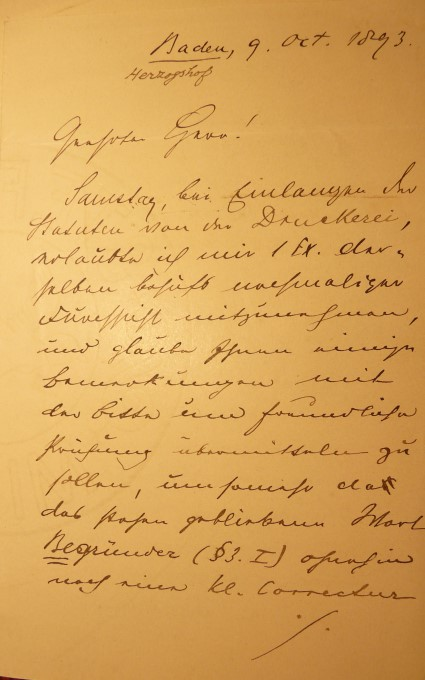 Baden, 9. Oct. 1893.
Herzogshof
Geehrter Herr!
Samstag, bei Einlangen der
Statuten von der Druckerei,
erlaubte ich mir 1 Ex. der-
selben behufs nochmaliger
Durchsicht mitzunehmen,
und glaube Ihnen einige
Bemerkungen mit
der Bitte um freundliche
Prüfung übermitteln zu
sollen, umsomehr da
das stehen gebliebene Wort
Begründer (§3. I) ohnehin
noch eine kl. Correctur
./.